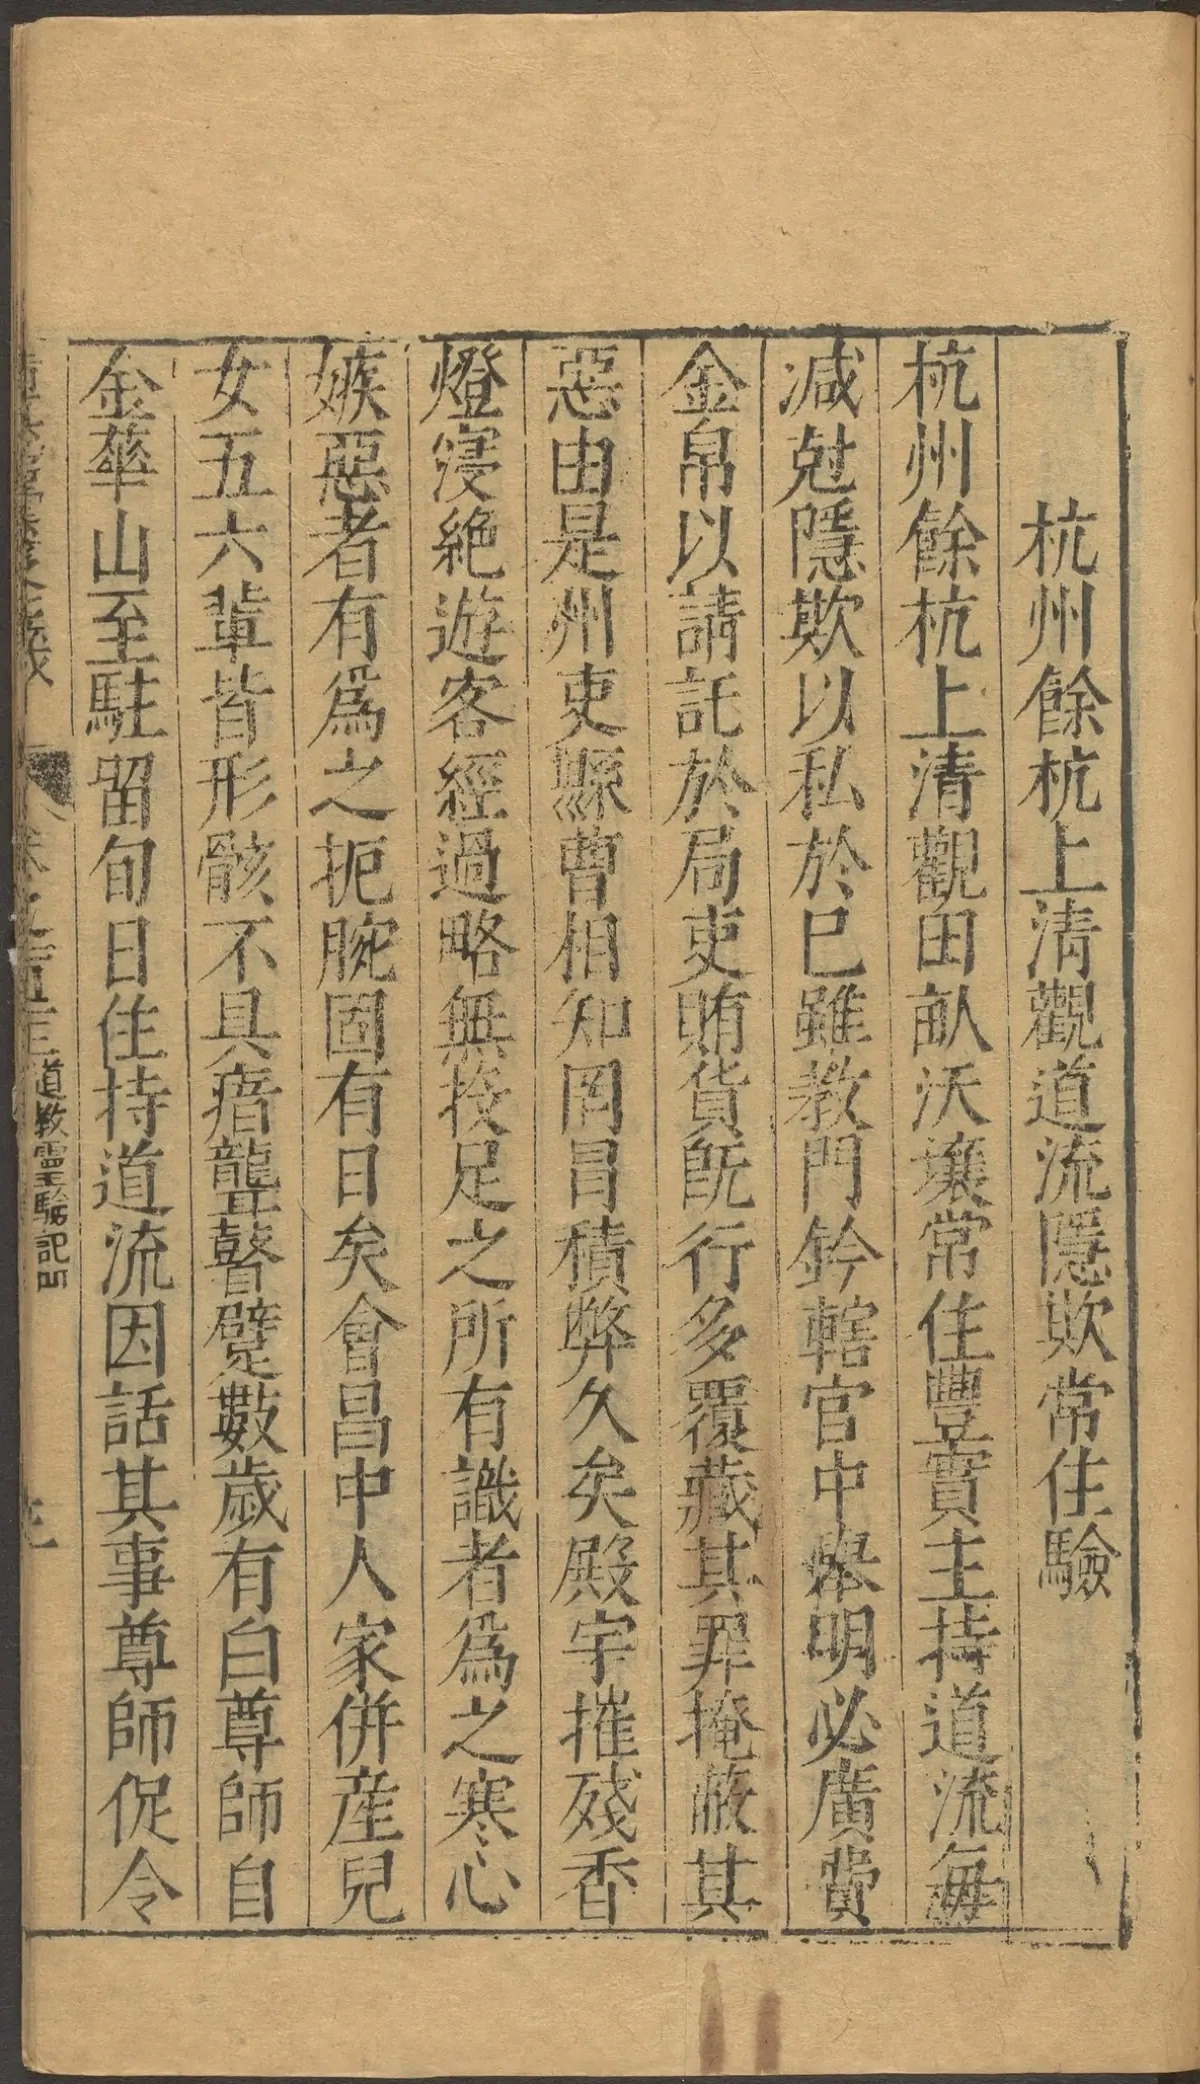 杭州餘杭上清觀道流隱欺常住驗
杭州餘杭上清觀田畝沃壤常住豐實主持道流每
減尅隱欺以私於巳雖教門鈐轄官中舉明必廣費
金帛以請託於局吏賄貨旣行多覆藏其罪掩蔽其
惡由是州吏縣曹相知罔冒積弊久矣殿宇摧殘香
燈寖絶遊客經過略無投足之所有識者爲之寒心
嫉惡者有爲之扼腕固有日矣會昌中人家併産兒
女五六輩皆形骸不具瘖聾瞽躄數歲有白尊師自
金華山至駐留旬日住持道流因話其事尊師促令
道教靈驗記